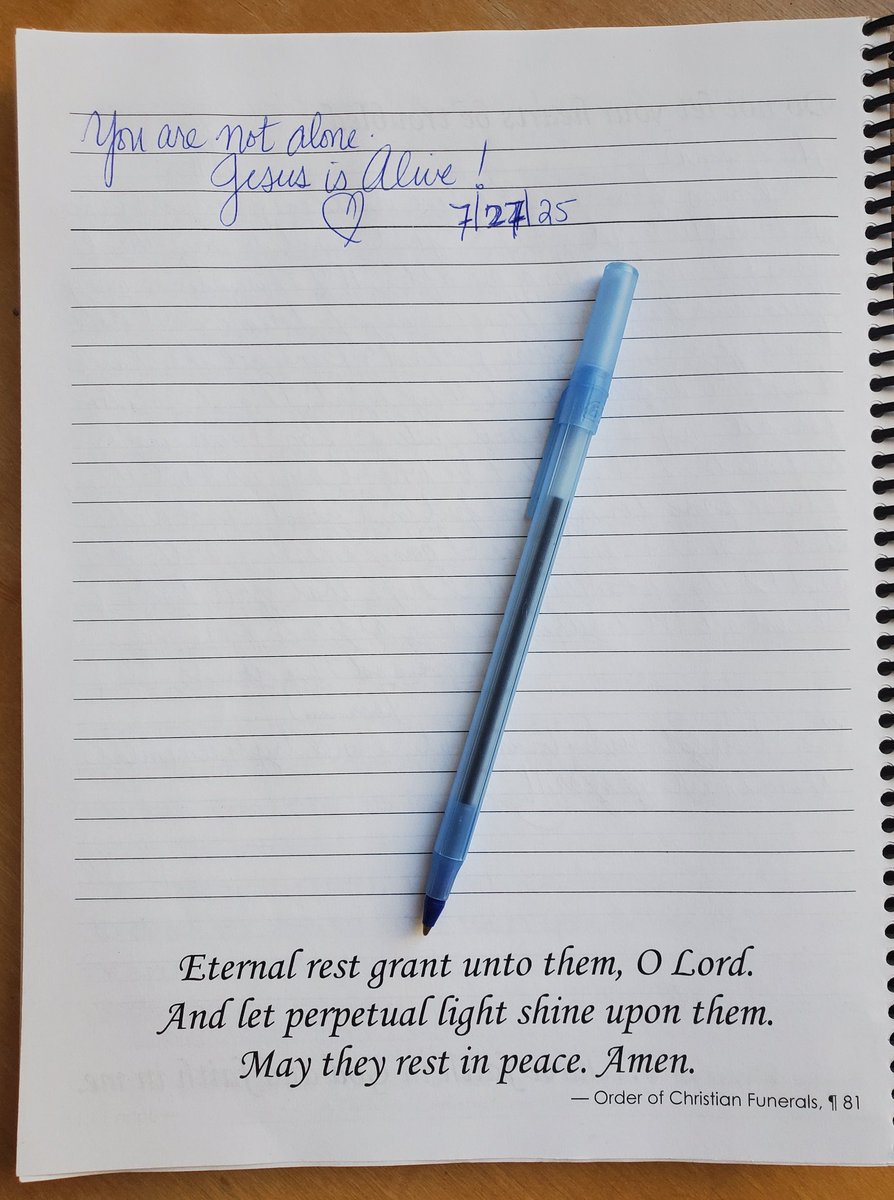 You are not alone.
Jesus is Alive!
7/27/25
Eternal rest grant unto them, O Lord.
And let perpetual light shine upon them.
May they rest in peace. Amen.
— Order of Christian Funerals, ¶ 81